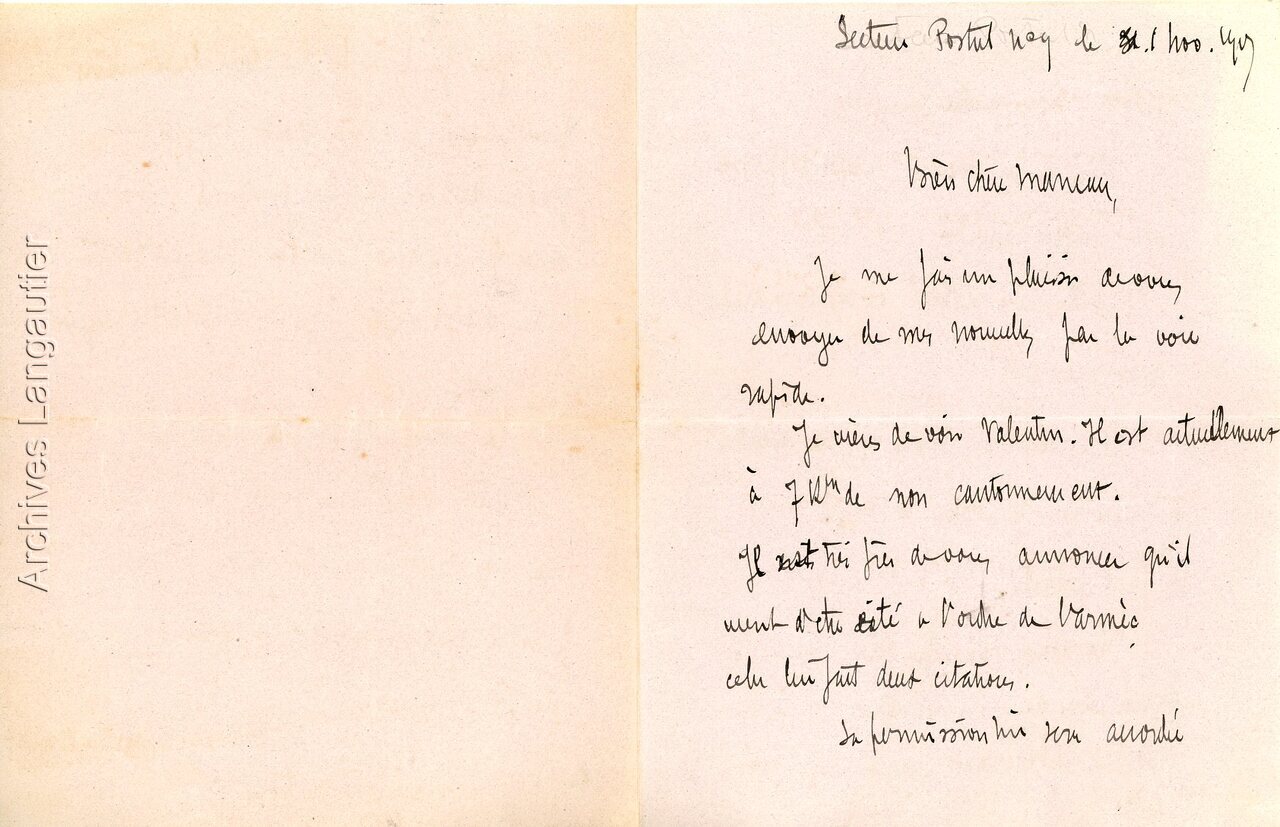 Archives Langautier
Secteur Postal n° 9 le 1 Nov.
Bien chère maman,
Je me fais un plaisir de vous
envoyer de mes nouvelles par la voie
rapide.
Je viens de voir Valentin. Il est actuellement
à 7 Km de non cantonnement.
Il est très fier de vous annoncer qu'il
vient d'etre cité a l'ordre de l'armée
cela lui fait deux citations.
Sa permission lui sera accordée